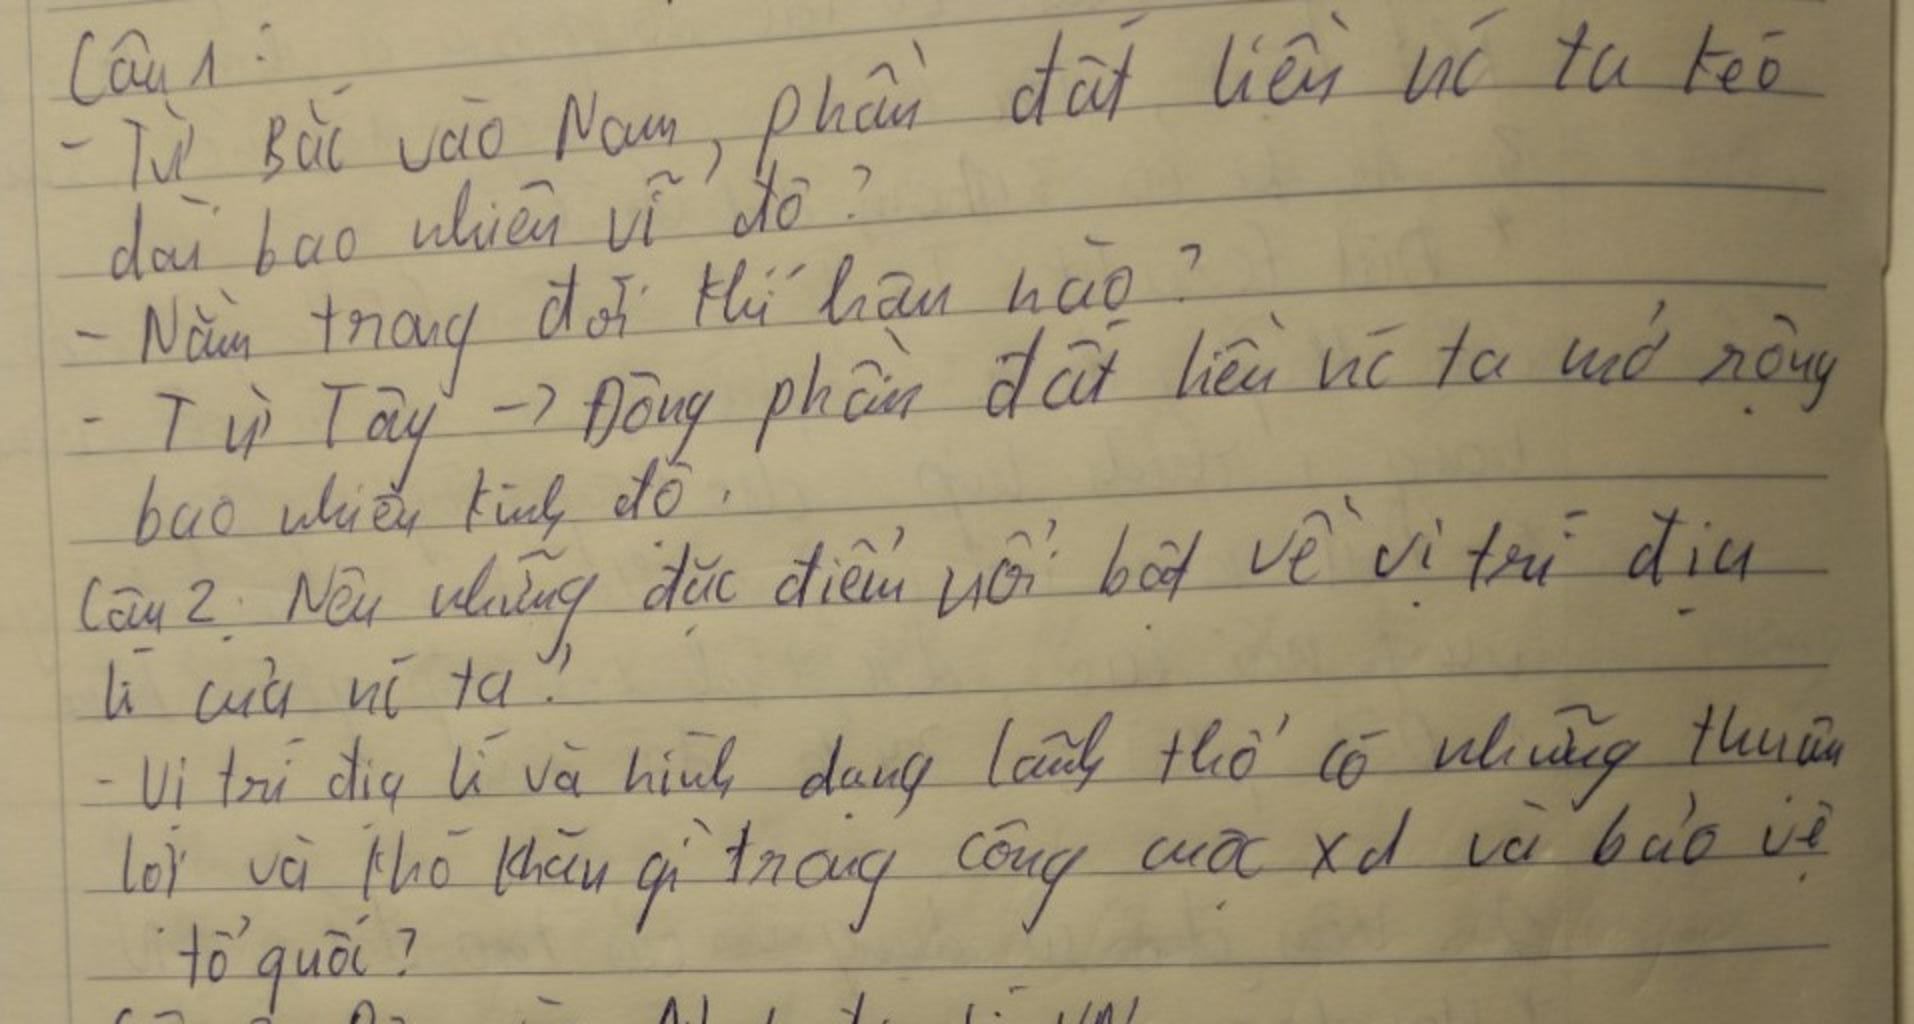 Câu 1:
- Từ Bắc vào Nam, phần đất liền nc ta kéo
dài bao nhiêu vĩ độ?
- Nằm trong đới khí hậu nào?
- Từ Tây -> Đông phần đất liền nc ta mở rộng
bao nhiêu kinh độ.
Câu 2: Nêu những đặc điểm nổi bật về vị trí địa
lí của nc ta?
- Vị trí địa lí và hình dạng lãnh thổ có những thuận
lợi và khó khăn gì trong công cuộc xd và bảo vệ
tổ quốc?